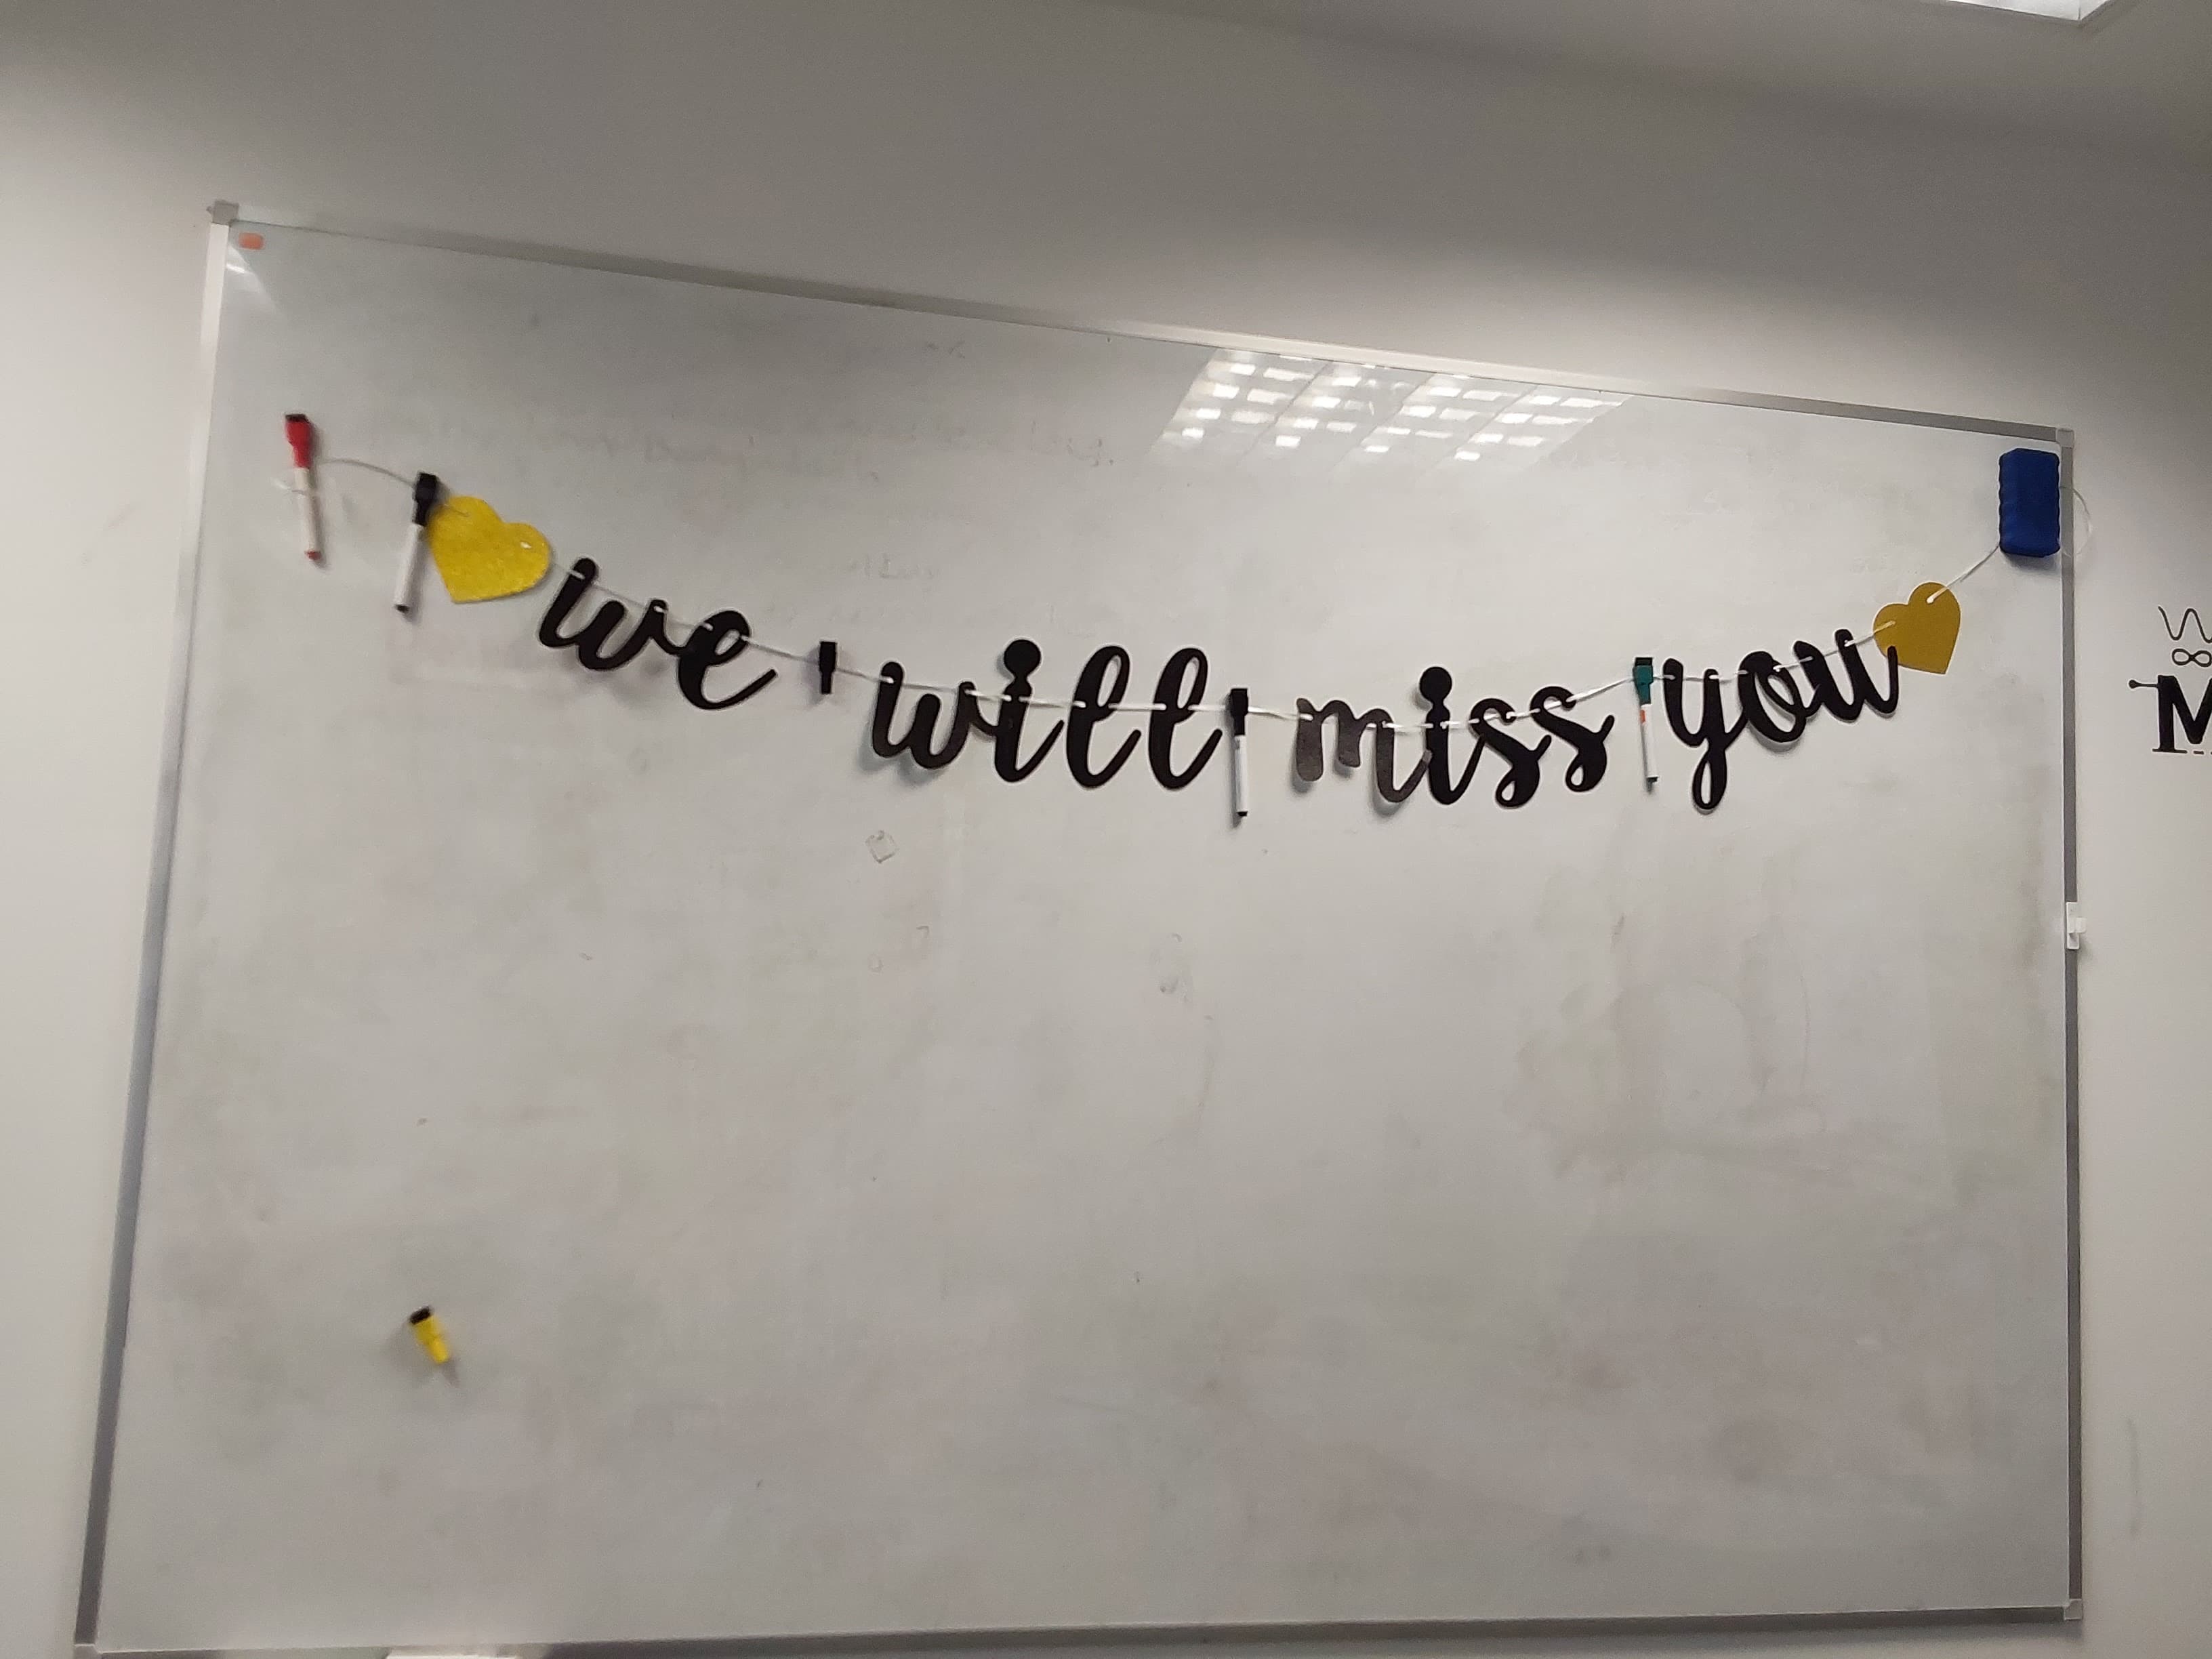 we will miss you
M